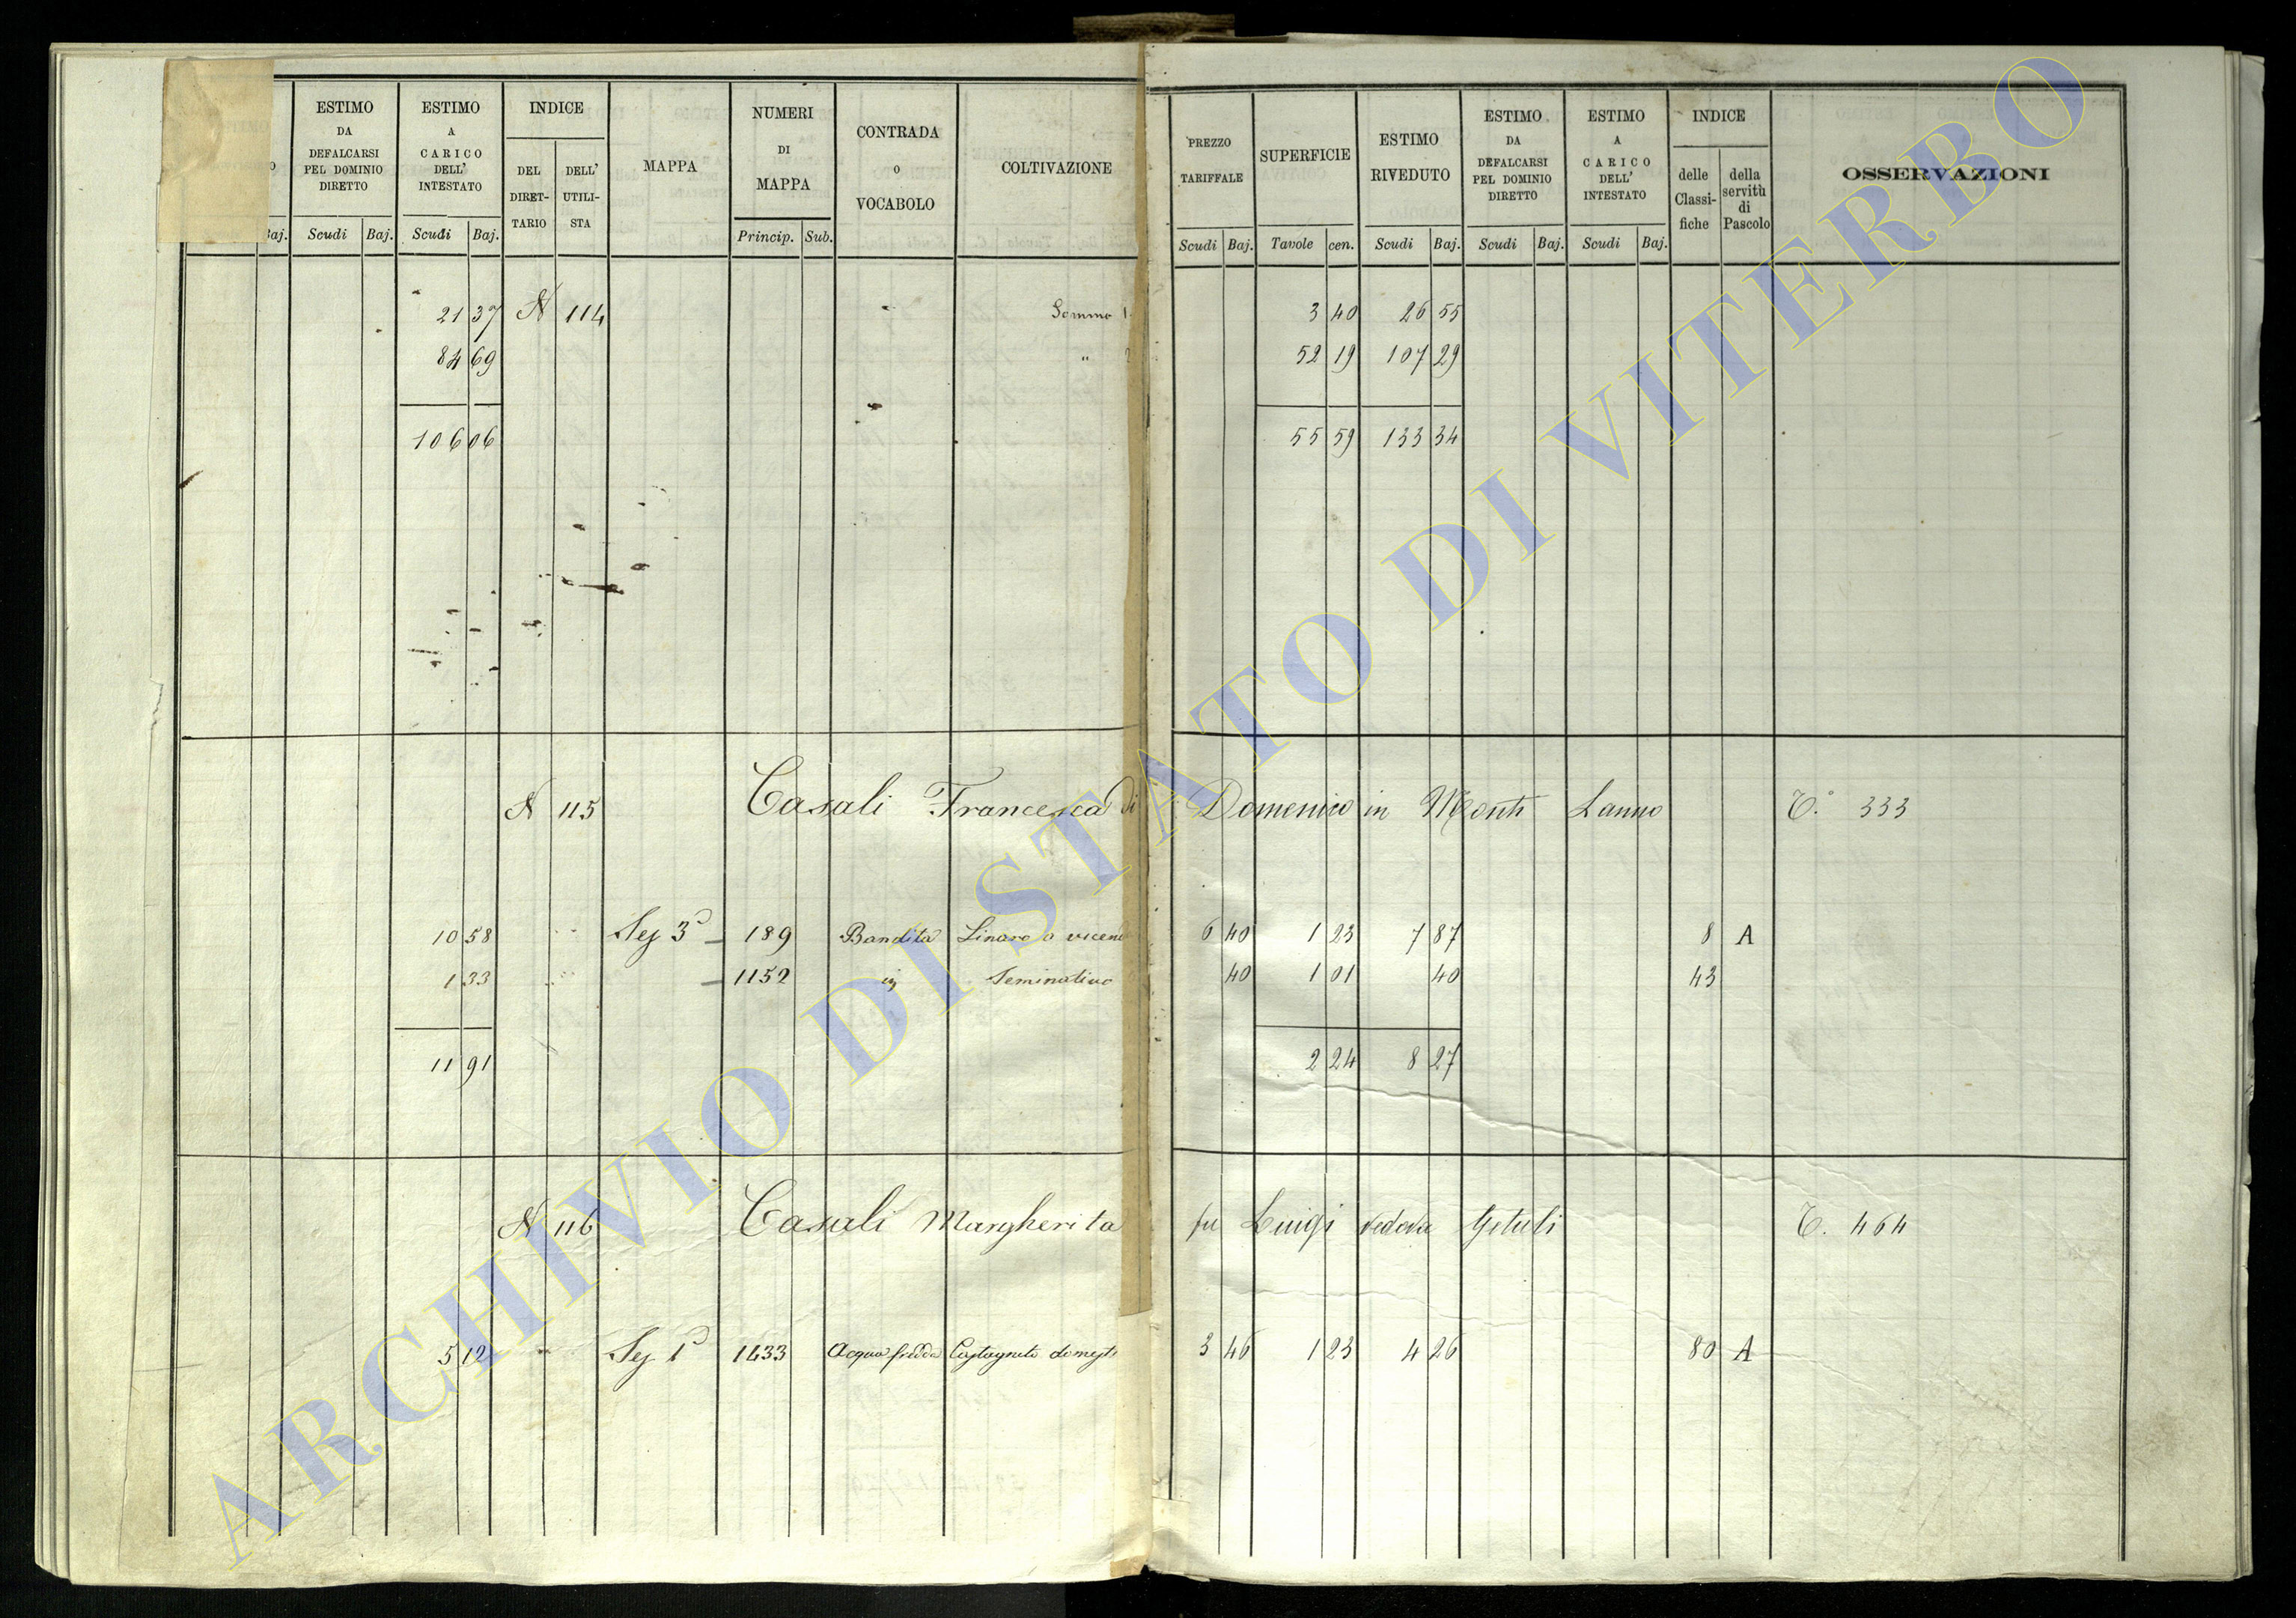 ESTIMO DA DEFALCARSI PEL DOMINIO DIRETTO
ESTIMO A CARICO DELL' INTESTATO
INDICE
DEL DIRET-TARIO
DELL' UTILI-STA
MAPPA
NUMERI DI MAPPA
CONTRADA o VOCABOLO
COLTIVAZIONE
PREZZO TARIFFALE
SUPERFICIE
ESTIMO RIVEDUTO
ESTIMO DA DEFALCARSI PEL DOMINIO DIRETTO
ESTIMO A CARICO DELL' INTESTATO
INDICE
delle Classi-fiche
della servitù di Pascolo
OSSERVAZIONI
Baj. Scudi Baj. Scudi Baj. Princip. Sub. Scudi Baj. Tavole cen. Scudi Baj. Scudi Baj. Scudi Baj.
21 37 N 114 Somma 3 40 26 55
84 69 " 52 19 107 29
106 06 55 59 133 34
N 115 Casali Francesca di Domenico in Monti Lanno T.° 333
10 58 Sez 3ª 189 Bandita Linaro a 6 40 1 23 7 87 8 A
1 33 1152 Seminativo 40 1 01 40 43
11 91 2 24 8 27
N 116 Casali Margherita fu Luigi vedova Getuli T. 464
5 12 Sez 1ª 1433 Acqua fredda Castagneto domest 3 46 1 23 4 26 80 A
ARCHIVIO DI STATO DI VITERBO